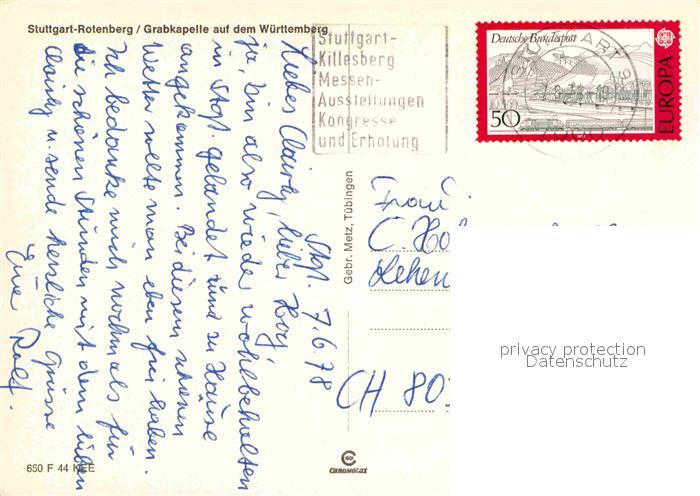 Stuttgart-Rotenberg / Grabkapelle auf dem Württemberg
Stuttgart-
Killesberg
Messen-
Ausstellungen
Kongresse
und Erholung
Deutsche Bundespost
50
EUROPA
Stgt. 7.6.78
Liebes Clairly, lieber
ja, bin also wieder wohlbehalten
in Stgt. gelandet und zu Hause
angekommen. Bei diesem schönen
Wetter sollte man eben frei haben.
Ich bedanke mich nochmals für
die schönen Stunden mit dem lieben
Clairly u. sende herzliche Grüsse
Rolf.
Gebr. Metz, Tübingen
Frau
C.
CH 80
privacy protection
Datenschutz
650 F 44 KEE
CHROMOLUX